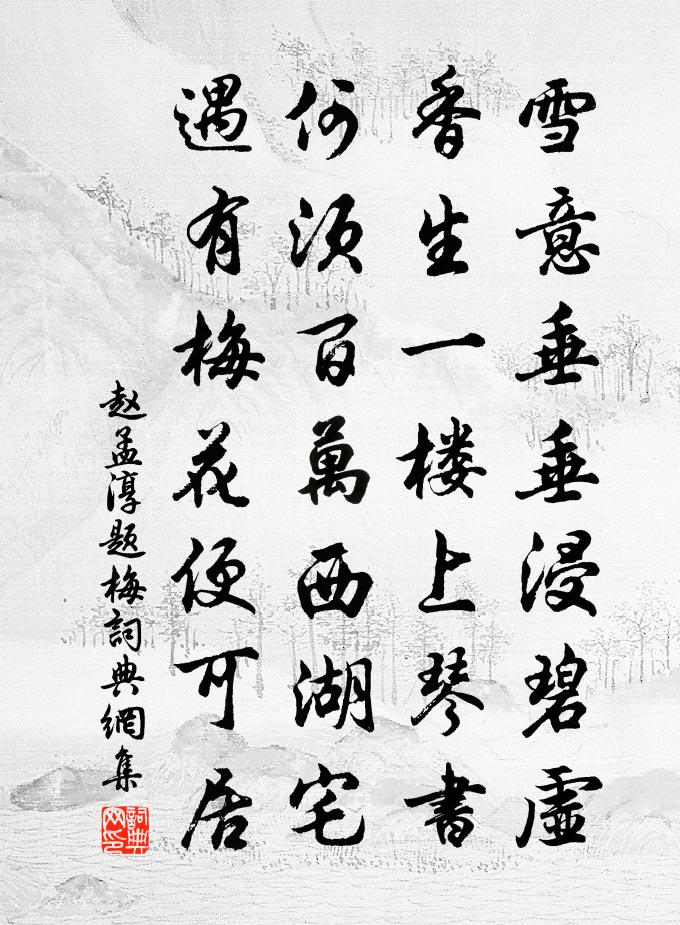 雪意垂垂浸碧虚
香生一楼上琴書
何须百萬西湖宅
遇有梅花便可居
赵孟淳题梅詞典網集
詞典网印